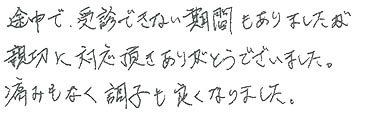 途中で、受診できない期間もありましたが
親切に対応頂きありがとうございました。
痛みもなく調子も良くなりました。